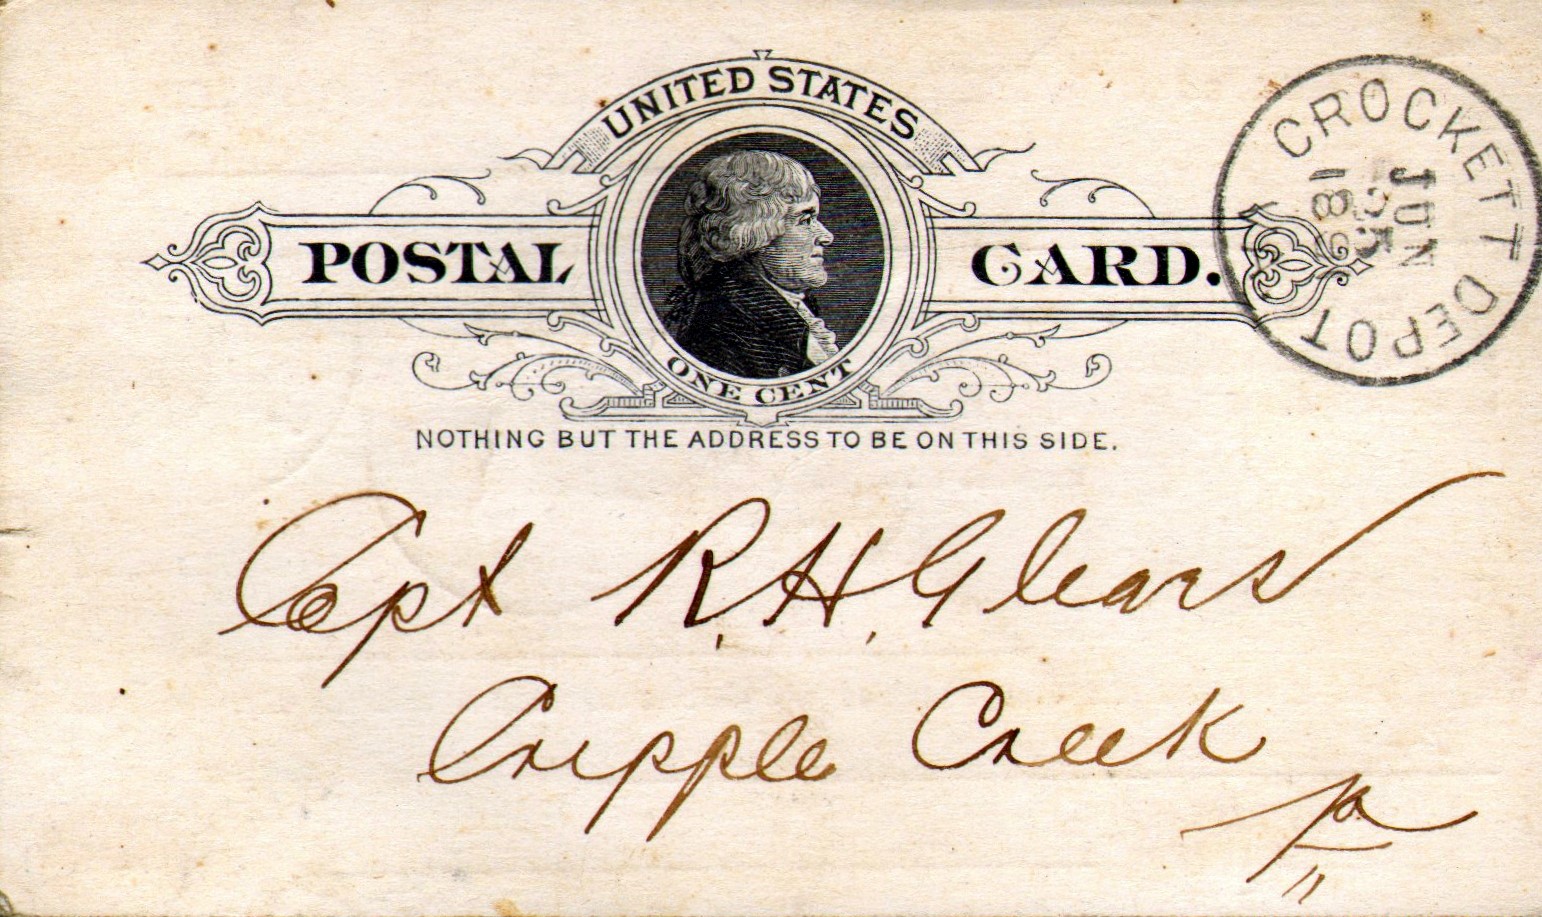 UNITED STATES
POSTAL CARD.
ONE CENT
NOTHING BUT THE ADDRESS TO BE ON THIS SIDE.
CROCKETT DEPOT
JUN
Capt R. H. Gleaves
Cripple Creek